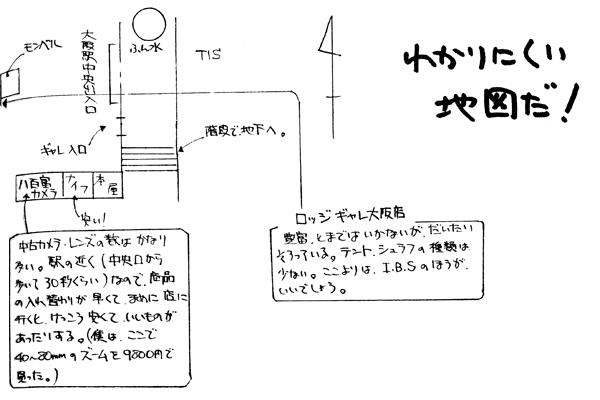 わかりにくい
地図だ!
モンベル
大阪駅中央出入口
ふん水
TIS
ギャレ入口
階段で地下へ。
八百富
カメラ
ナイフ
本屋
安い!
ロッジギャレ大阪店
豊富、とまではいかないが、だいたい
そろっている。テント、シュラフの種類は
少ない。ここよりは、I.B.Sのほうが、
いいでしょう。
中古カメラ・レンズの数は かなり
多い。駅の近く(中央口から
歩いて30秒くらい)なので、商品
の入れ替わりが早くて、まめに店に
行くと、けっこう安くて、いいものが
あったりする。(僕は、ここで
40~80mmのズームを9800円で
買った。)